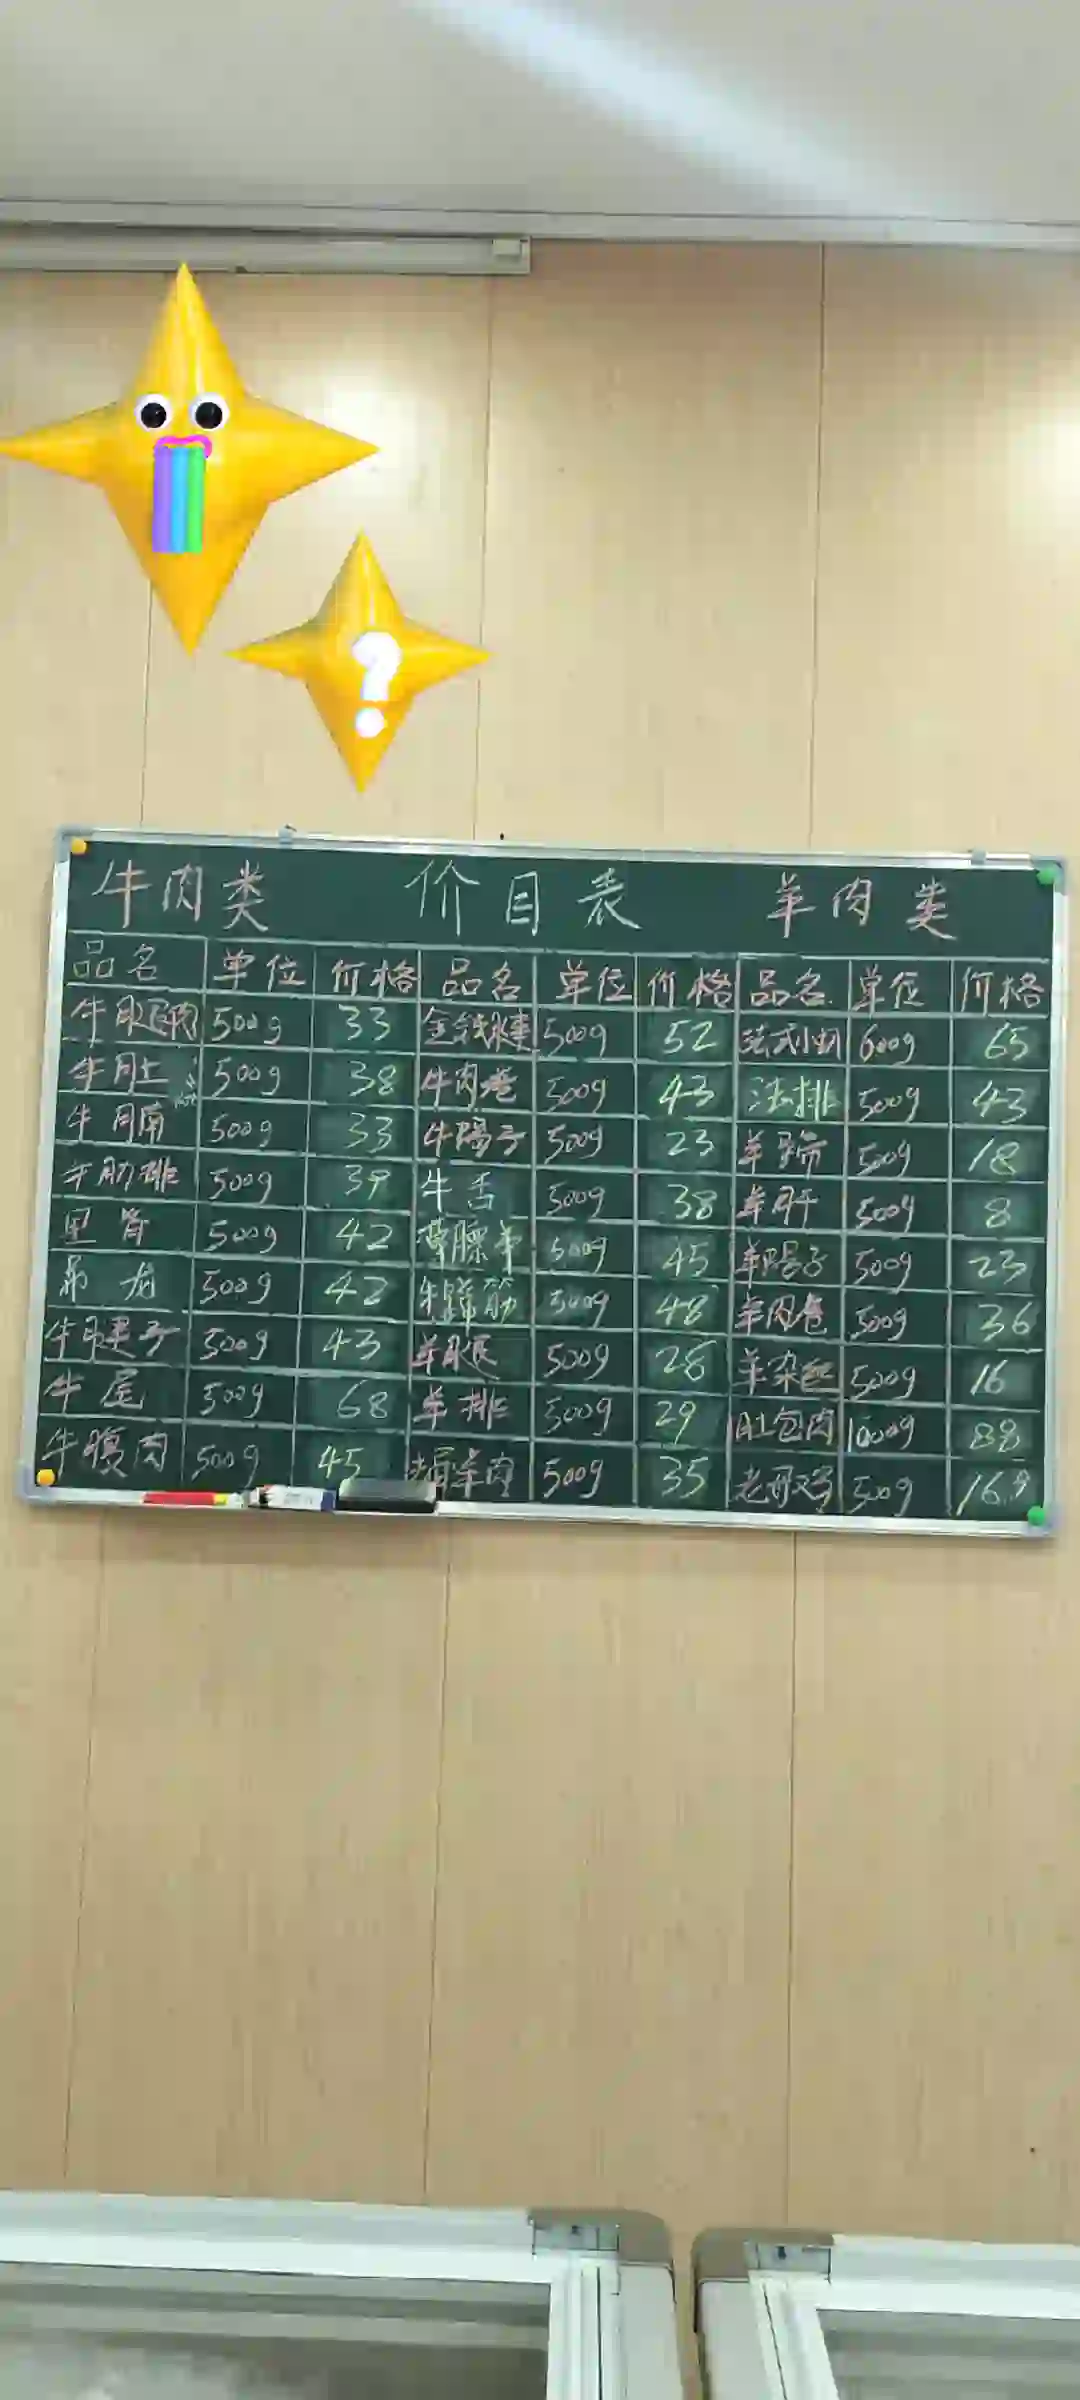 ?
牛肉类 价目表 羊肉类
品名 单位 价格 品名 单位 价格 品名 单位 价格
牛腿肉 500g 33 金钱腱 500g 52 法式小切 600g 65
牛肚 500g 38 牛肉卷 500g 43 法排 500g 43
牛腩 500g 33 牛肠子 500g 23 羊蹄 500g 18
牛肋排 500g 39 牛舌 500g 38 羊肝 500g 8
里脊 500g 42 500g 45 羊肠子 500g 23
吊龙 500g 42 牛蹄筋 500g 48 羊肉卷 500g 36
牛腱子 500g 43 羊腿 500g 28 羊杂 500g 16
牛尾 500g 68 羊排 500g 29 肚包肉 1000g 88
牛腹肉 500g 45 羊肉 500g 35 老母鸡 500g 16.9